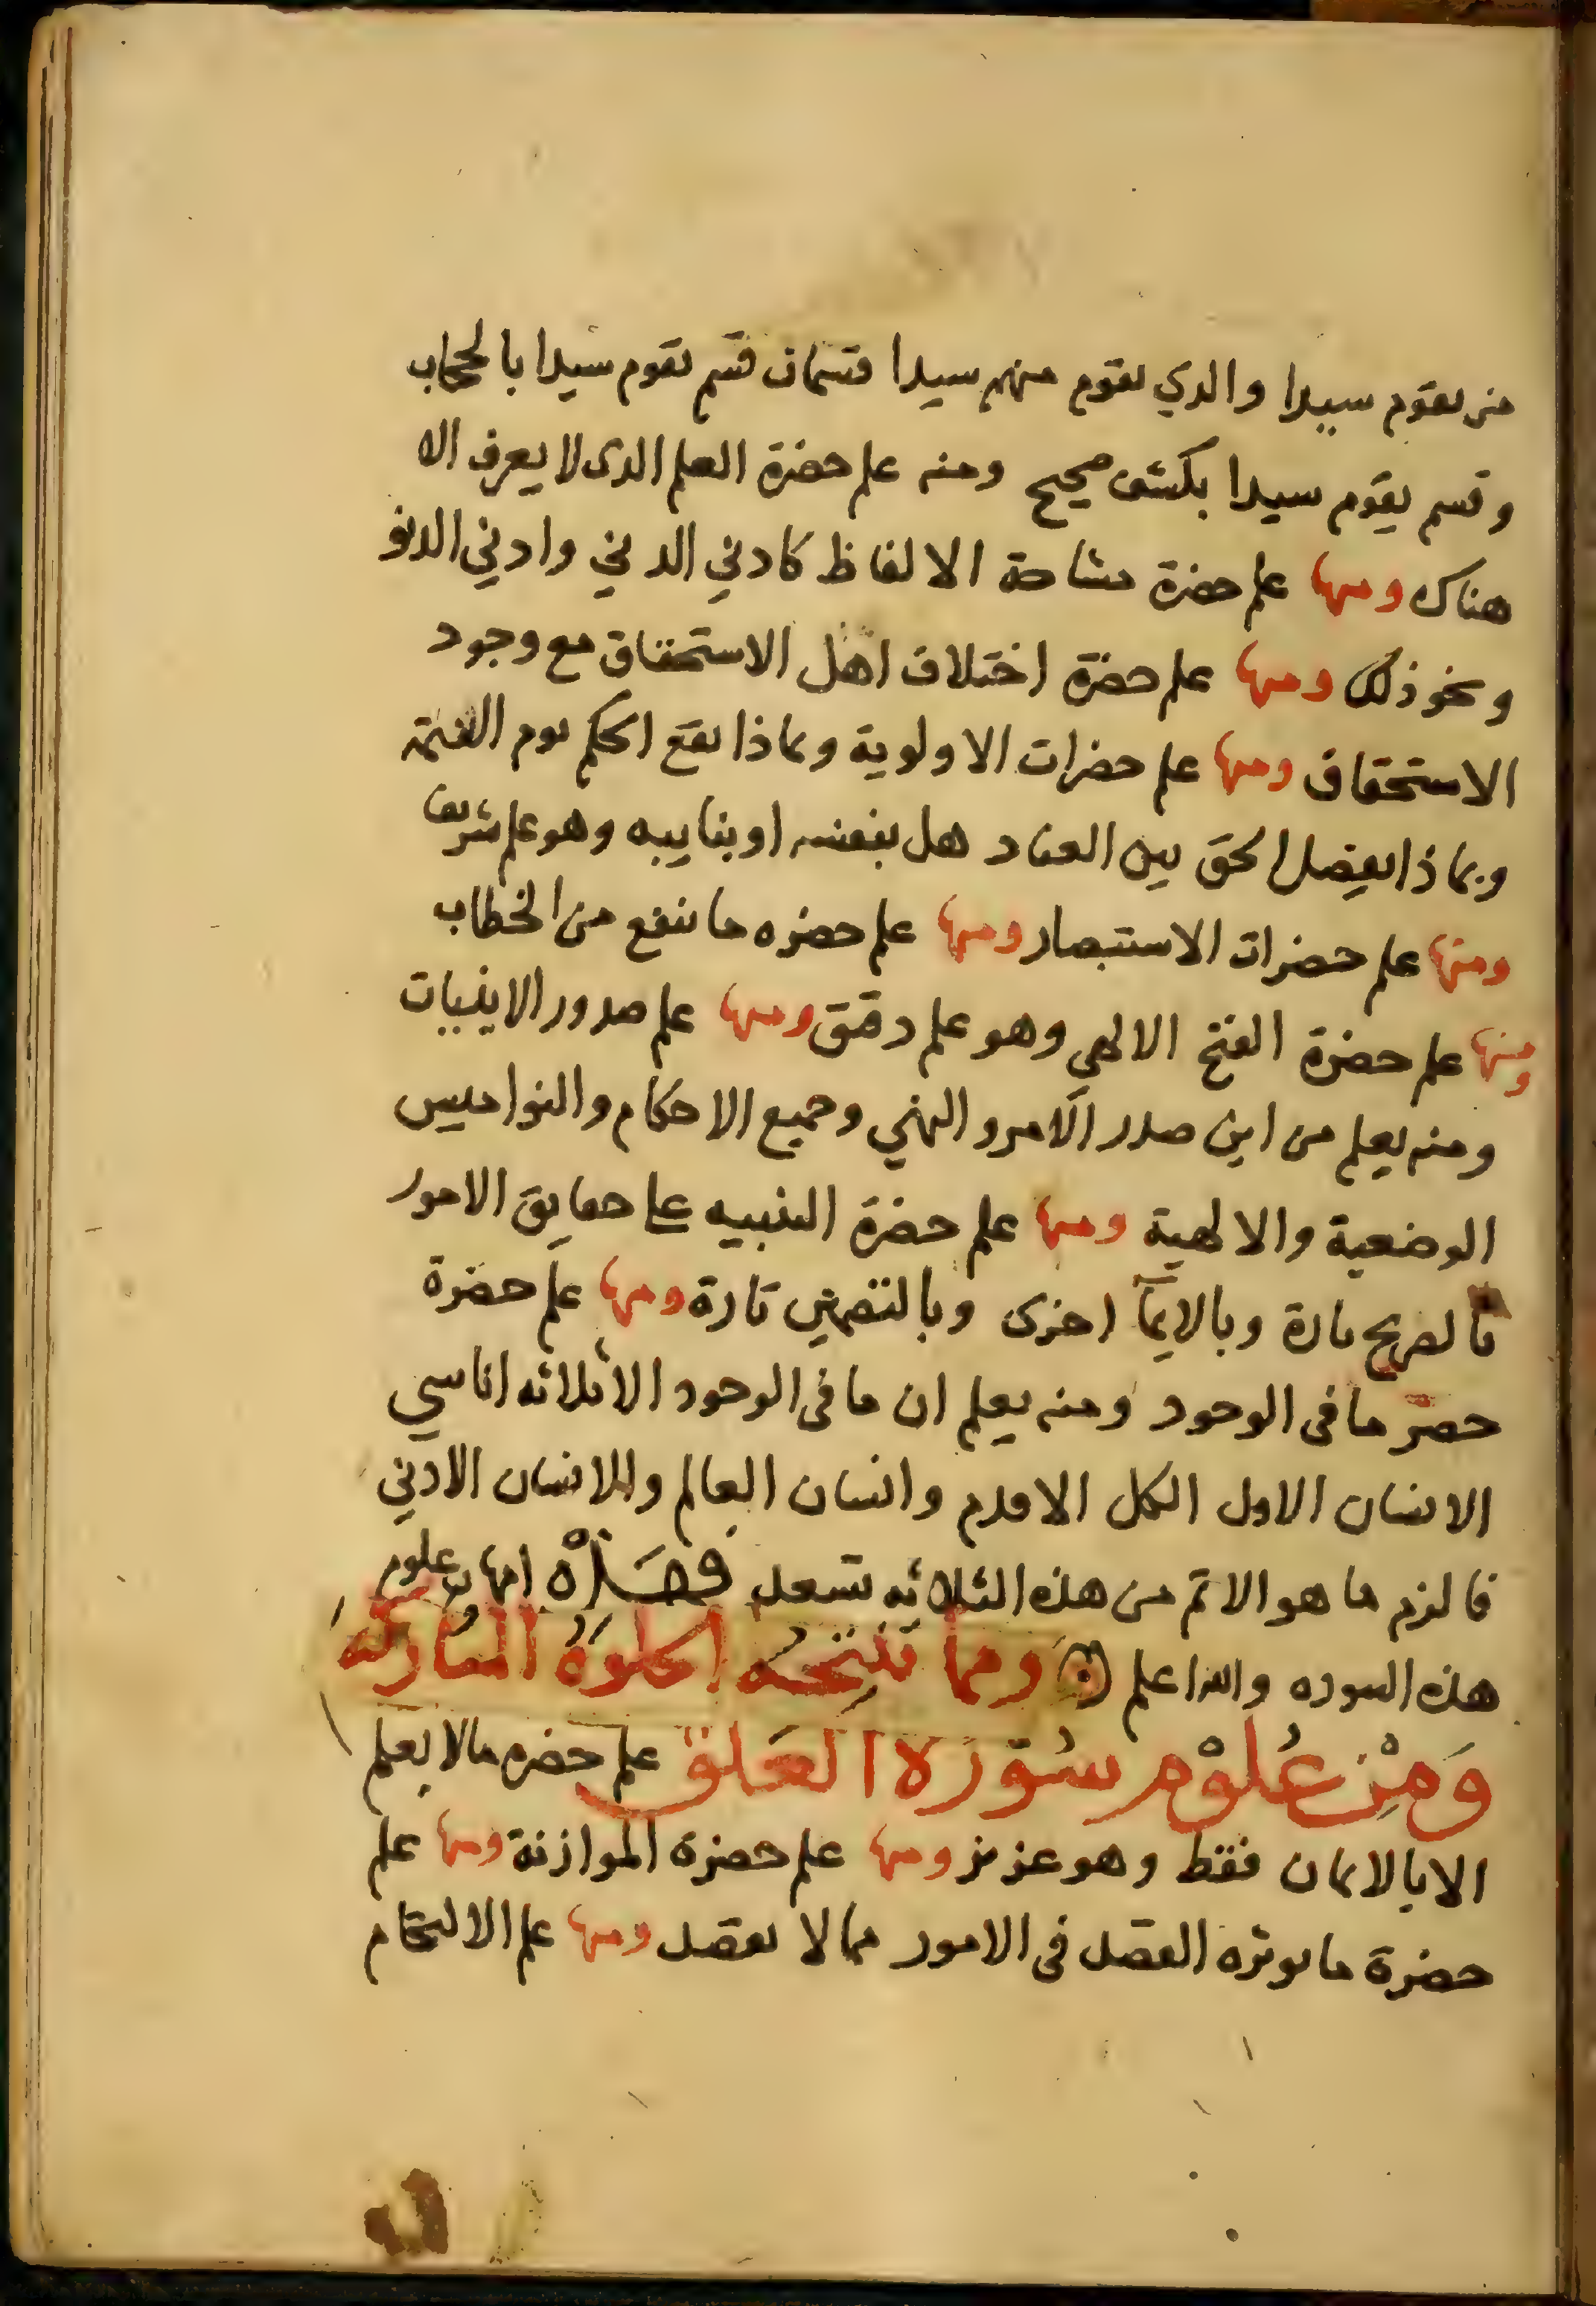 من يقوم سيدا والذي يقوم منهم سيدا قسمان قسم يقوم سيدا بالحجاب
وقسم يقوم سيدا بكشف صحيح ومنه علم حضرة العلم الذي لا يعرف الا
هناك ومنها علم حضرة مشاحة الالفاظ كادني الدني وادني الدنو
ونحو ذلك ومنها علم حضرة اختلاف اهل الاستحقاق مع وجود
الاستحقاق ومنها علم حضرات الاولوية وبماذا يقع الحكم يوم القيمة
وبماذا يفصل الحق بين العباد هل بنفسه او بنايبه وهو علم شريف
ومنها علم حضرات الاستبصار ومنها علم حضره ما ينفع من الخطاب
ومنها علم حضرة الفتح الالهي وهو علم دقيق ومنها علم صدور الاينيات
ومنه يعلم من اين صدر الامر والنهي وجميع الاحكام والنواميس
الوضعية والالهية ومنها علم حضرة التنبيه على حقايق الامور
بالصريح تارة وبالايمآ اخرى وبالتضمين تارة ومنها علم حضرة
حصر ما في الوجود ومنه يعلم ان ما في الوجود الا ثلاثه اناسي
الانسان الاول الكل الاقدم وانسان العالم والانسان الادني
فالزم ما هو الاتم من هذه الثلاثه تسعد فهذه امهات علوم
هذه السوره والله اعلم ومما تنتجه الخلوة المباركة
وَمِنْ عُلوْم سُوْرَة العَلق علم حضره ما لا يعلم
الا بالايمان فقط وهو عزيز ومنها علم حضرة الموازنة ومنها علم
حضرة ما يوثره العقل في الامور مما لا يعقل ومنها علم الالتحام